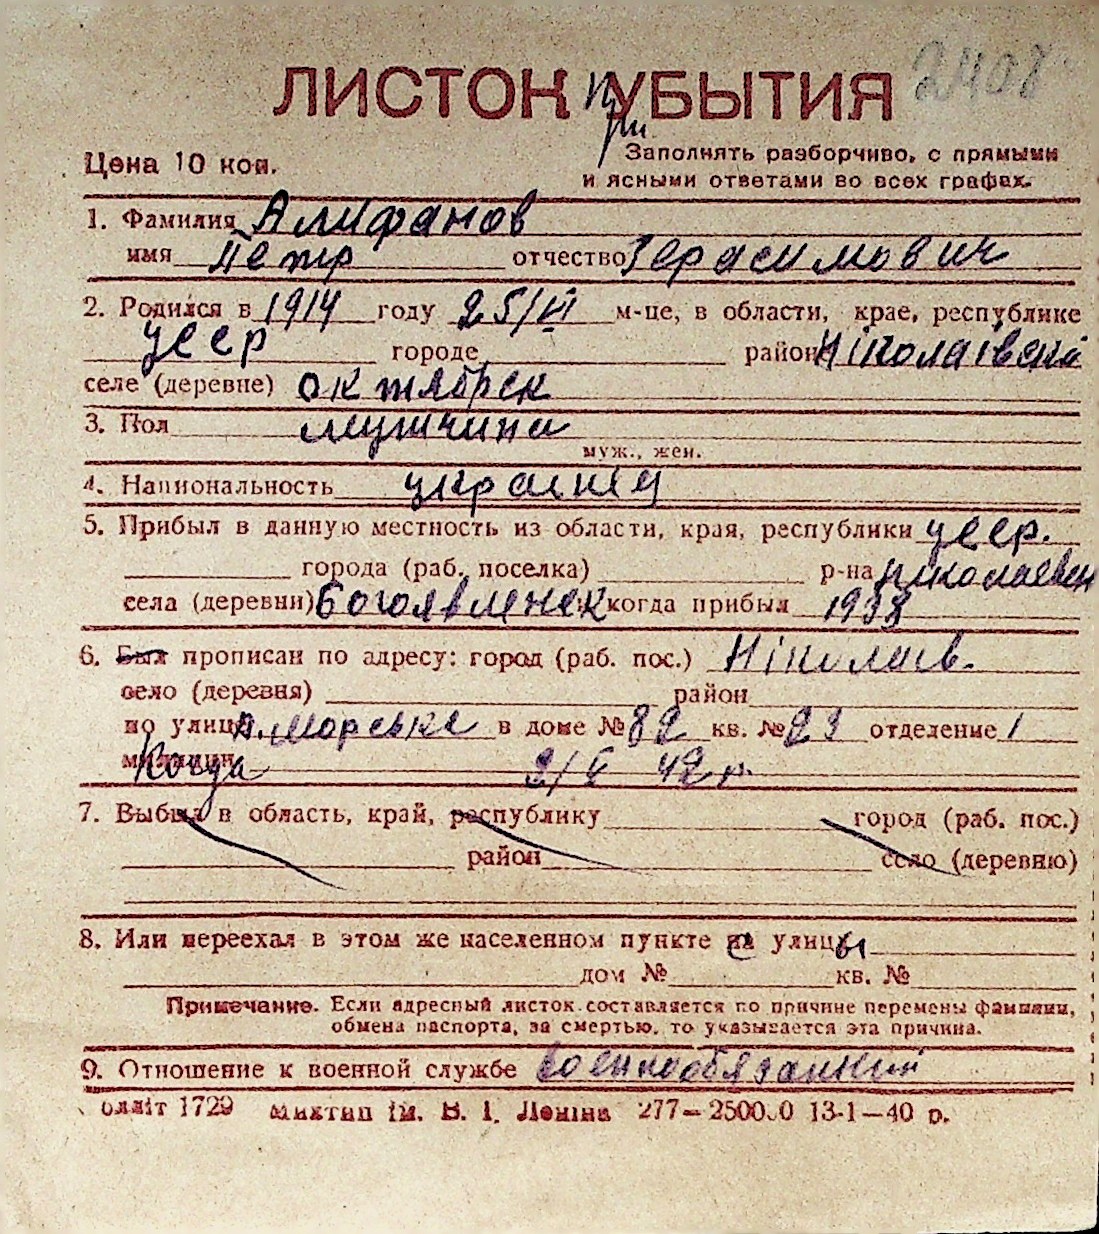 2408
ЛИСТОК при УБЫТИЯ
Цена 10 коп.
Заполнять разборчиво, с прямыми
и ясными ответами во всех графах.
1. Фамилия Алифанов
имя Петр отчество Герасимович
2. Родился в 1914 году 25/VI м-це, в области, крае, республике
усср городе районе Ніколаівский
селе (деревне) октябрск
3. Пол мужчина
муж., жен.
4. Национальность
5. Прибыл в данную местность из области, края, республики усср.
города (раб. поселка) р-на
села (деревни) Богоявленск когда прибыл 1933
6. Был прописан по адресу: город (раб. пос.) Ніколаів.
село (деревня) район
по улице в доме № 82 кв. № 23 отделение 1
милиции Когда 2/V 42 г.
7. Выбыл в область, край, республику город (раб. пос.)
район село (деревню)
8. Или переехал в этом же населенном пункте с улицы
дом № кв. №
Примечание. Если адресный листок составляется по причине перемены фамилии,
обмена паспорта, за смертью, то указывается эта причина.
9. Отношение к военной службе военнообязанний
блліт 1729 Миктип ім. В. І. Леніна 277— 250000 13-1—40 р.